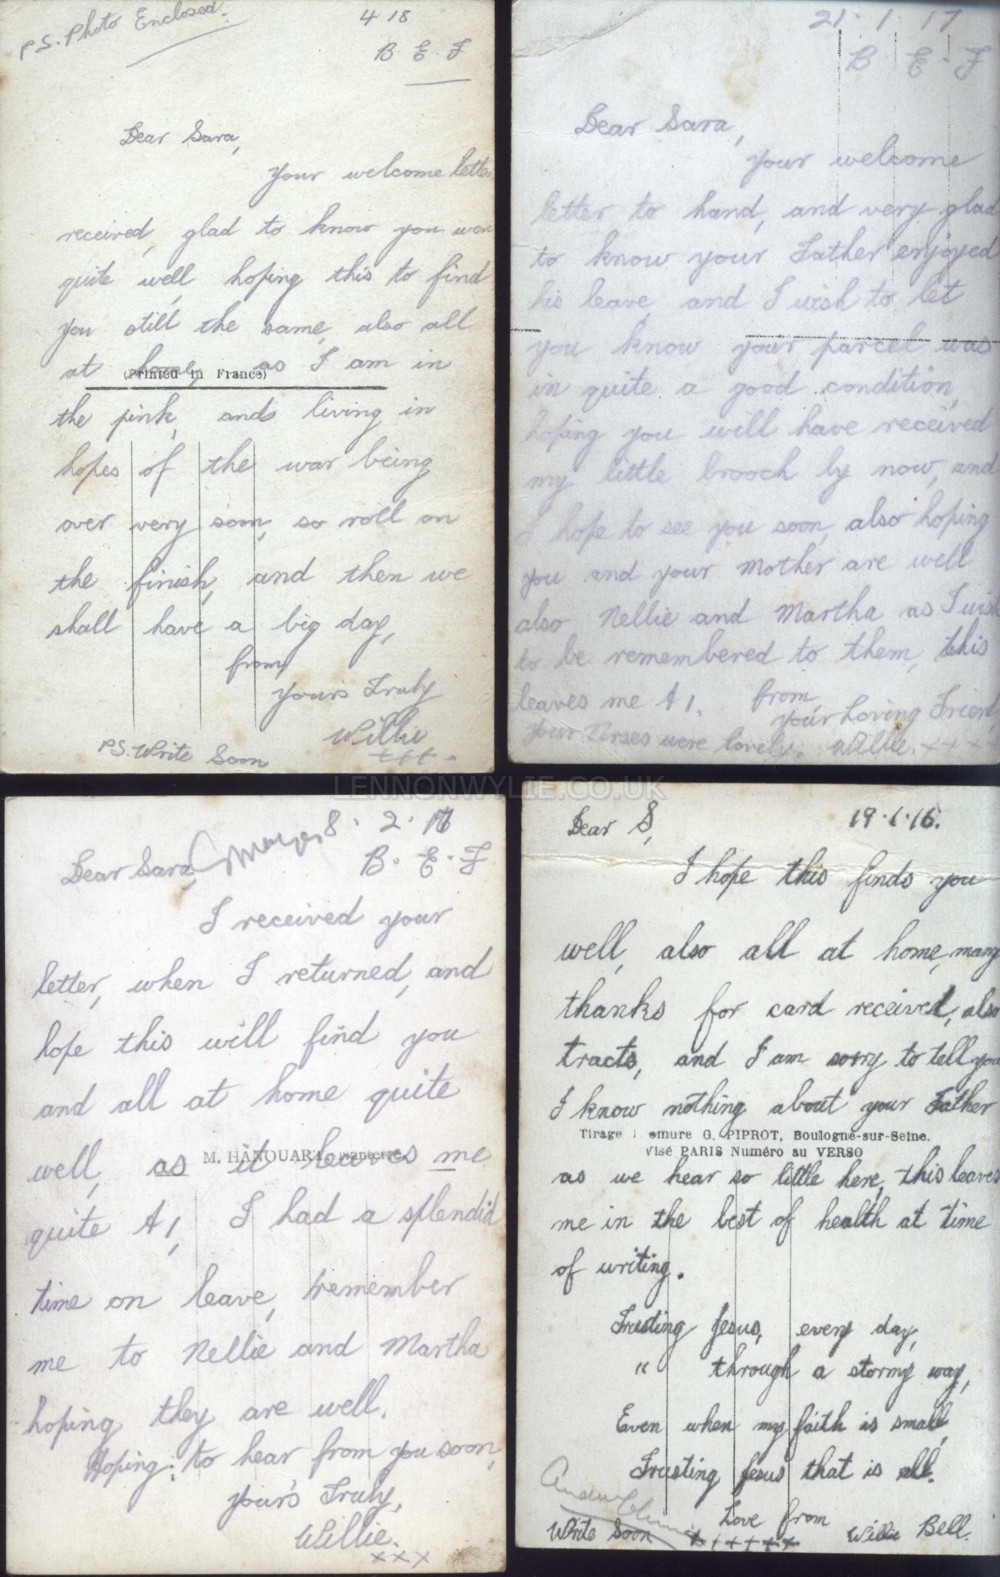 P.S. Photo Enclosed.
4 18
B E F
Dear Sara,
Your welcome letter
received, glad to know you were
quite well, hoping this to find
you still the same, also all
at as I am in
(Printed in France)
the pink, and living in
hopes of the war being
over very soon, so roll on
the finish, and then we
shall have a big day,
from
Yours Truly
Willie
+++.
P.S. Write Soon
21.1.17
B E F
Dear Sara,
Your welcome
letter to hand, and very glad
to know your Father enjoyed
his leave, and I wish to let
you know your parcel was
in quite a good condition,
hoping you will have received
my little brooch by now, and
I hope to see you soon, also hoping
you and your Mother are well
also Nellie and Martha as I wish
to be remembered to them, this
leaves me A1. from
your Loving Friend
Your Verses were lovely. Willie. ××××
LENNONWYLIE.CO.UK
8.2.
B.E.F
Dear Sara,
I received your
letter, when I returned, and
hope this will find you
and all at home quite
well, as it leaves me
M. HANOUART,
quite A1, I had a splendid
time on leave, remember
me to Nellie and Martha
hoping they are well.
Hoping to hear from you soon,
Your's Truly,
Willie.
×××
Dear S,
19.1.16.
I hope this finds you
well, also all at home, many
thanks for card received, also
tracts, and I am sorry to tell you
I know nothing about your Father
Tirage G. PIPROT, Boulogne-sur-Seine.
Visé PARIS Numéro au VERSO
as we hear so little here, this leaves
me in the best of health at time
of writing.
Trusting Jesus, every day,
" through a stormy way,
Even when my faith is small,
Trusting Jesus that is all.
Love from
Write Soon ++++++ Willie Bell.